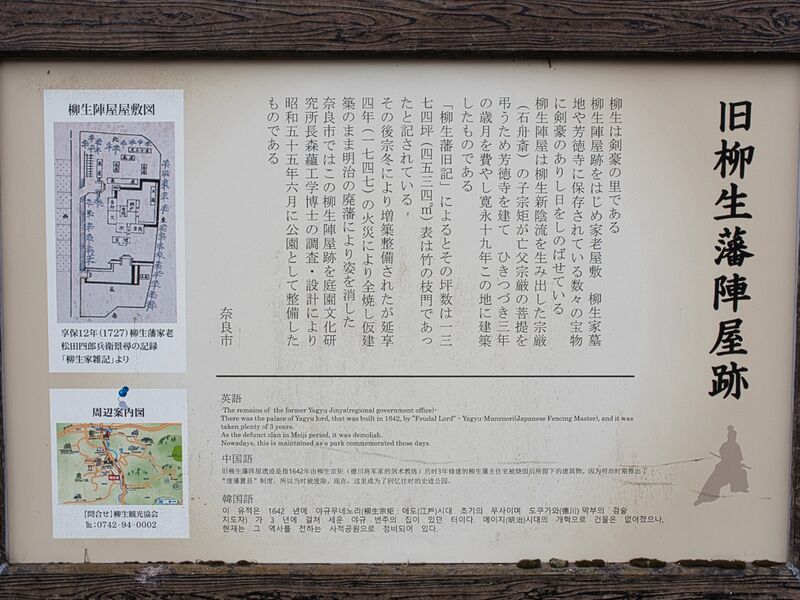 旧柳生藩陣屋跡
柳生は剣豪の里である
柳生陣屋跡をはじめ家老屋敷　柳生家墓
地や芳徳寺に保存されている数々の宝物
に剣豪のありし日をしのばせている
柳生陣屋は柳生新陰流を生み出した宗厳
（石舟斎）の子宗矩が亡父宗厳の菩提を
弔うため芳徳寺を建て　ひきつづき三年
の歳月を費やし寛永十九年この地に建築
したものである
「柳生藩旧記」によるとその坪数は一三
七四坪（四五三四㎡）表は竹の枝門であっ
たと記されている
その後宗冬により増築整備されたが延享
四年（一七四七）の火災により全焼し仮建
築のまま明治の廃藩により姿を消した
奈良市ではこの柳生陣屋跡を庭園文化研
究所長森蘊工学博士の調査・設計により
昭和五十五年六月に公園として整備した
ものである
奈良市
柳生陣屋屋敷図
享保12年（1727）柳生藩家老
松田四郎兵衛景尋の記録
「柳生家雑記」より
周辺案内図
【問合せ】柳生観光協会
℡:0742-94-0002
英語
·The remains of the former Yagyu Jinya(regional government office)·
There was the palace of Yagyu lord, that was built in 1642, by "Feudal Lord"・Yagyu·Munenori(Japanese Fencing Master), and it was
taken plenty of 3 years.
As the defunct clan in Meiji period, it was demolish.
Nowadays, this is maintained as a park commemorated those days.
中国語
旧柳生藩阵屋遗迹是指1642年由柳生宗矩（德川将军家的剑术教练）历时3年修建的柳生藩主住宅被烧毁后所留下的建筑物，因为明治时期推出了
"废藩置县"制度，所以当时被废除。现在，这里成为了回忆往时的史迹公园。
韓国語
이 유적은 1642 년에 야규무네노리(柳生宗矩：에도(江戶)시대 초기의 무사이며 도쿠가와(德川)막부의 검술
지도자) 가 3 년에 걸쳐 세운 야규 번주의 집이 있던 터이다. 메이지(明治)시대의 개혁으로 건물은 없어졌으나,
현재는 그 역사를 전하는 사적공원으로 정비되어 있다.